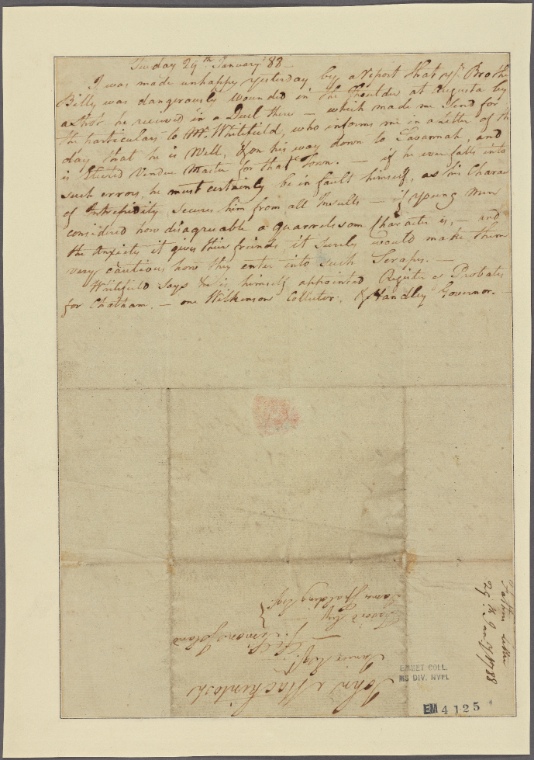 Tuesday 29th January 88
I was made unhappy yesterday by a report that my Broth
Billy was dangerously wounded in the shoulder at Augusta by
a shot he received in a Duel there — which made me send for
the particulars to Mr. Whitefield, who informs me in a letter of th
day that he is Well, & on his way down to Savannah, and
is Elected Vendue Master for that Town. — if he ever falls into
such errors, he must certainly be in fault himself, as his Chara
of Intrepidity secures him from all Insults — if young Men
considered how disagreeable a quarrelsom Character is, — and
the Anxiety it gives their friends it surely would make them
very cautious how they enter into such Scrapes. —
Whitefield says he is himself appointed Register of Probats
for Chatham. — one Wilkinson Collector, & Handley Governor.
John McIntosh
James Spalding Esqr
29th Jany 1788
EMMET COLL.
MS DIV. NYPL
EM 4125